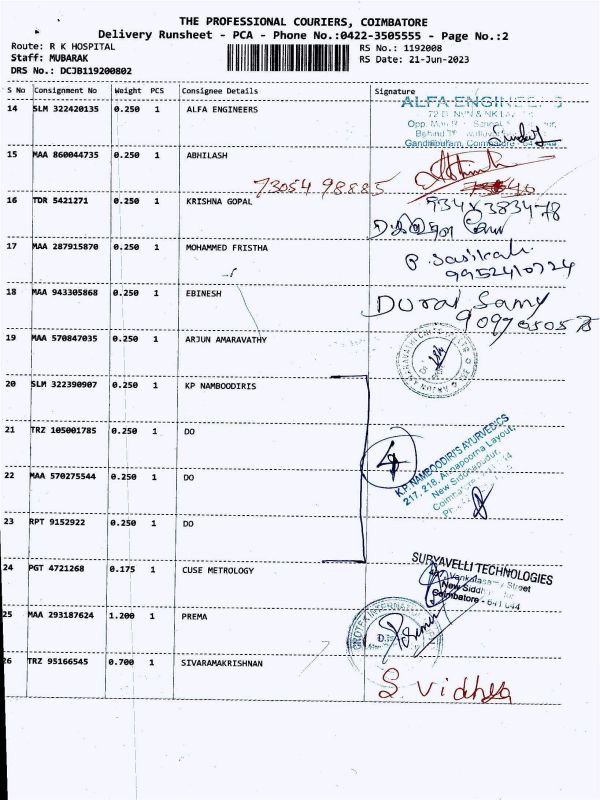 THE PROFESSIONAL COURIERS, COIMBATORE
Delivery Runsheet - PCA - Phone No.:0422-3505555 - Page No.:2
Route: R K HOSPITAL
RS No.: 1192008
Staff: MUBARAK
RS Date: 21-Jun-2023
DRS No.: DCJB119200802
S No Consignment No Weight PCS Consignee Details Signature
14 SLM 322420135 0.250 1 ALFA ENGINEERS
ALFA ENGINEERS
Gandhipuram, Coimbatore
15 MAA 860044735 0.250 1 ABHILASH
73054 98885
16 TDR 5421271 0.250 1 KRISHNA GOPAL
17 MAA 287915870 0.250 1 MOHAMMED FRISTHA
P. Sasikala
9952410724
18 MAA 943305868 0.250 1 EBINESH
Durai Samy
19 MAA 570847035 0.250 1 ARJUN AMARAVATHY
20 SLM 322390907 0.250 1 KP NAMBOODIRIS
21 TRZ 105001785 0.250 1 DO
4
K.P. NAMBOODIRI'S AYURVEDICS
217, 218, Annapoorna Layout,
New Siddhapudur,
22 MAA 570275544 0.250 1 DO
23 RPT 9152922 0.250 1 DO
24 PGT 4721268 0.175 1 CUSE METROLOGY
SURYAVELLI TECHNOLOGIES
Street
Coimbatore - 641 044
25 MAA 293187624 1.200 1 PREMA
Prema
26 TRZ 95166545 0.700 1 SIVARAMAKRISHNAN
S. Vidhya